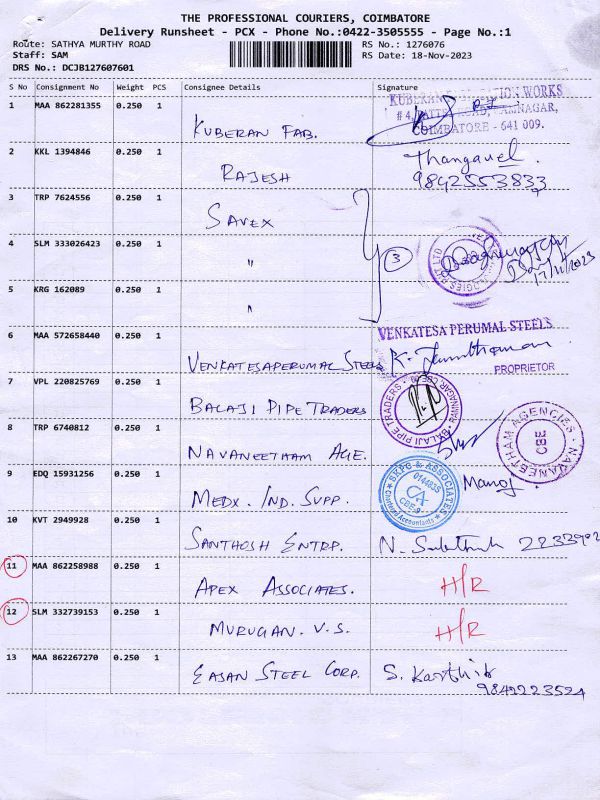 THE PROFESSIONAL COURIERS, COIMBATORE
Delivery Runsheet - PCX - Phone No.:0422-3505555 - Page No.:1
Route: SATHYA MURTHY ROAD
RS No.: 1276076
Staff: SAM
RS Date: 18-Nov-2023
DRS No.: DCJB127607601
S No Consignment No Weight PCS Consignee Details Signature
1 MAA 862281355 0.250 1 KUBERAN FAB.
COIMBATORE - 641 009.
2 KKL 1394846 0.250 1 RAJESH Thangavel.
9842553833
3 TRP 7624556 0.250 1 SAVEX
4 SLM 333026423 0.250 1 " 3
17/11/2023
5 KRG 162089 0.250 1 "
6 MAA 572658440 0.250 1 VENKATESAPERUMAL STEELS
VENKATESA PERUMAL STEELS
PROPRIETOR
7 VPL 220825769 0.250 1 BALAJI PIPE TRADERS
BALAJI PIPE TRADERS
8 TRP 6740812 0.250 1 NAVANEETHAM AGE.
NAVANEETHAM AGENCIES
CBE
9 EDQ 15931256 0.250 1 MEDX. IND. SUPP. Manoj
& ASSOCIATES
CA
Chartered Accountants
10 KVT 2949928 0.250 1 SANTHOSH ENTRP.
11 MAA 862258988 0.250 1 APEX ASSOCIATES. H/R
12 SLM 332739153 0.250 1 MURUGAN. V.S. H/R
13 MAA 862267270 0.250 1 EASAN STEEL CORP. S. Karthik
9842223524